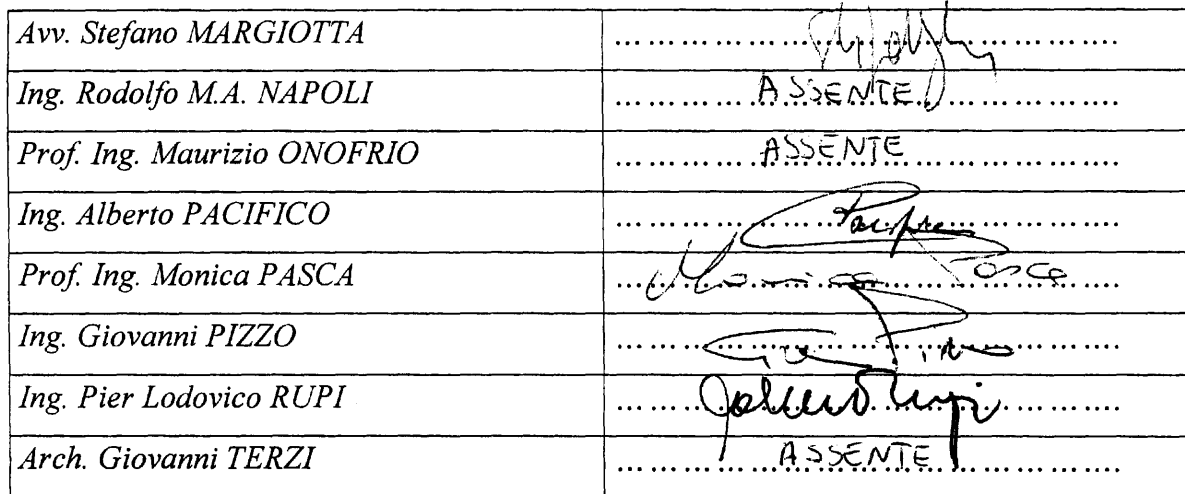 Avv. Stefano MARGIOTTA
Ing. Rodolfo M.A. NAPOLI ASSENTE
Prof. Ing. Maurizio ONOFRIO ASSENTE
Ing. Alberto PACIFICO
Prof. Ing. Monica PASCA Monica Pasca
Ing. Giovanni PIZZO
Ing. Pier Lodovico RUPI
Arch. Giovanni TERZI ASSENTE